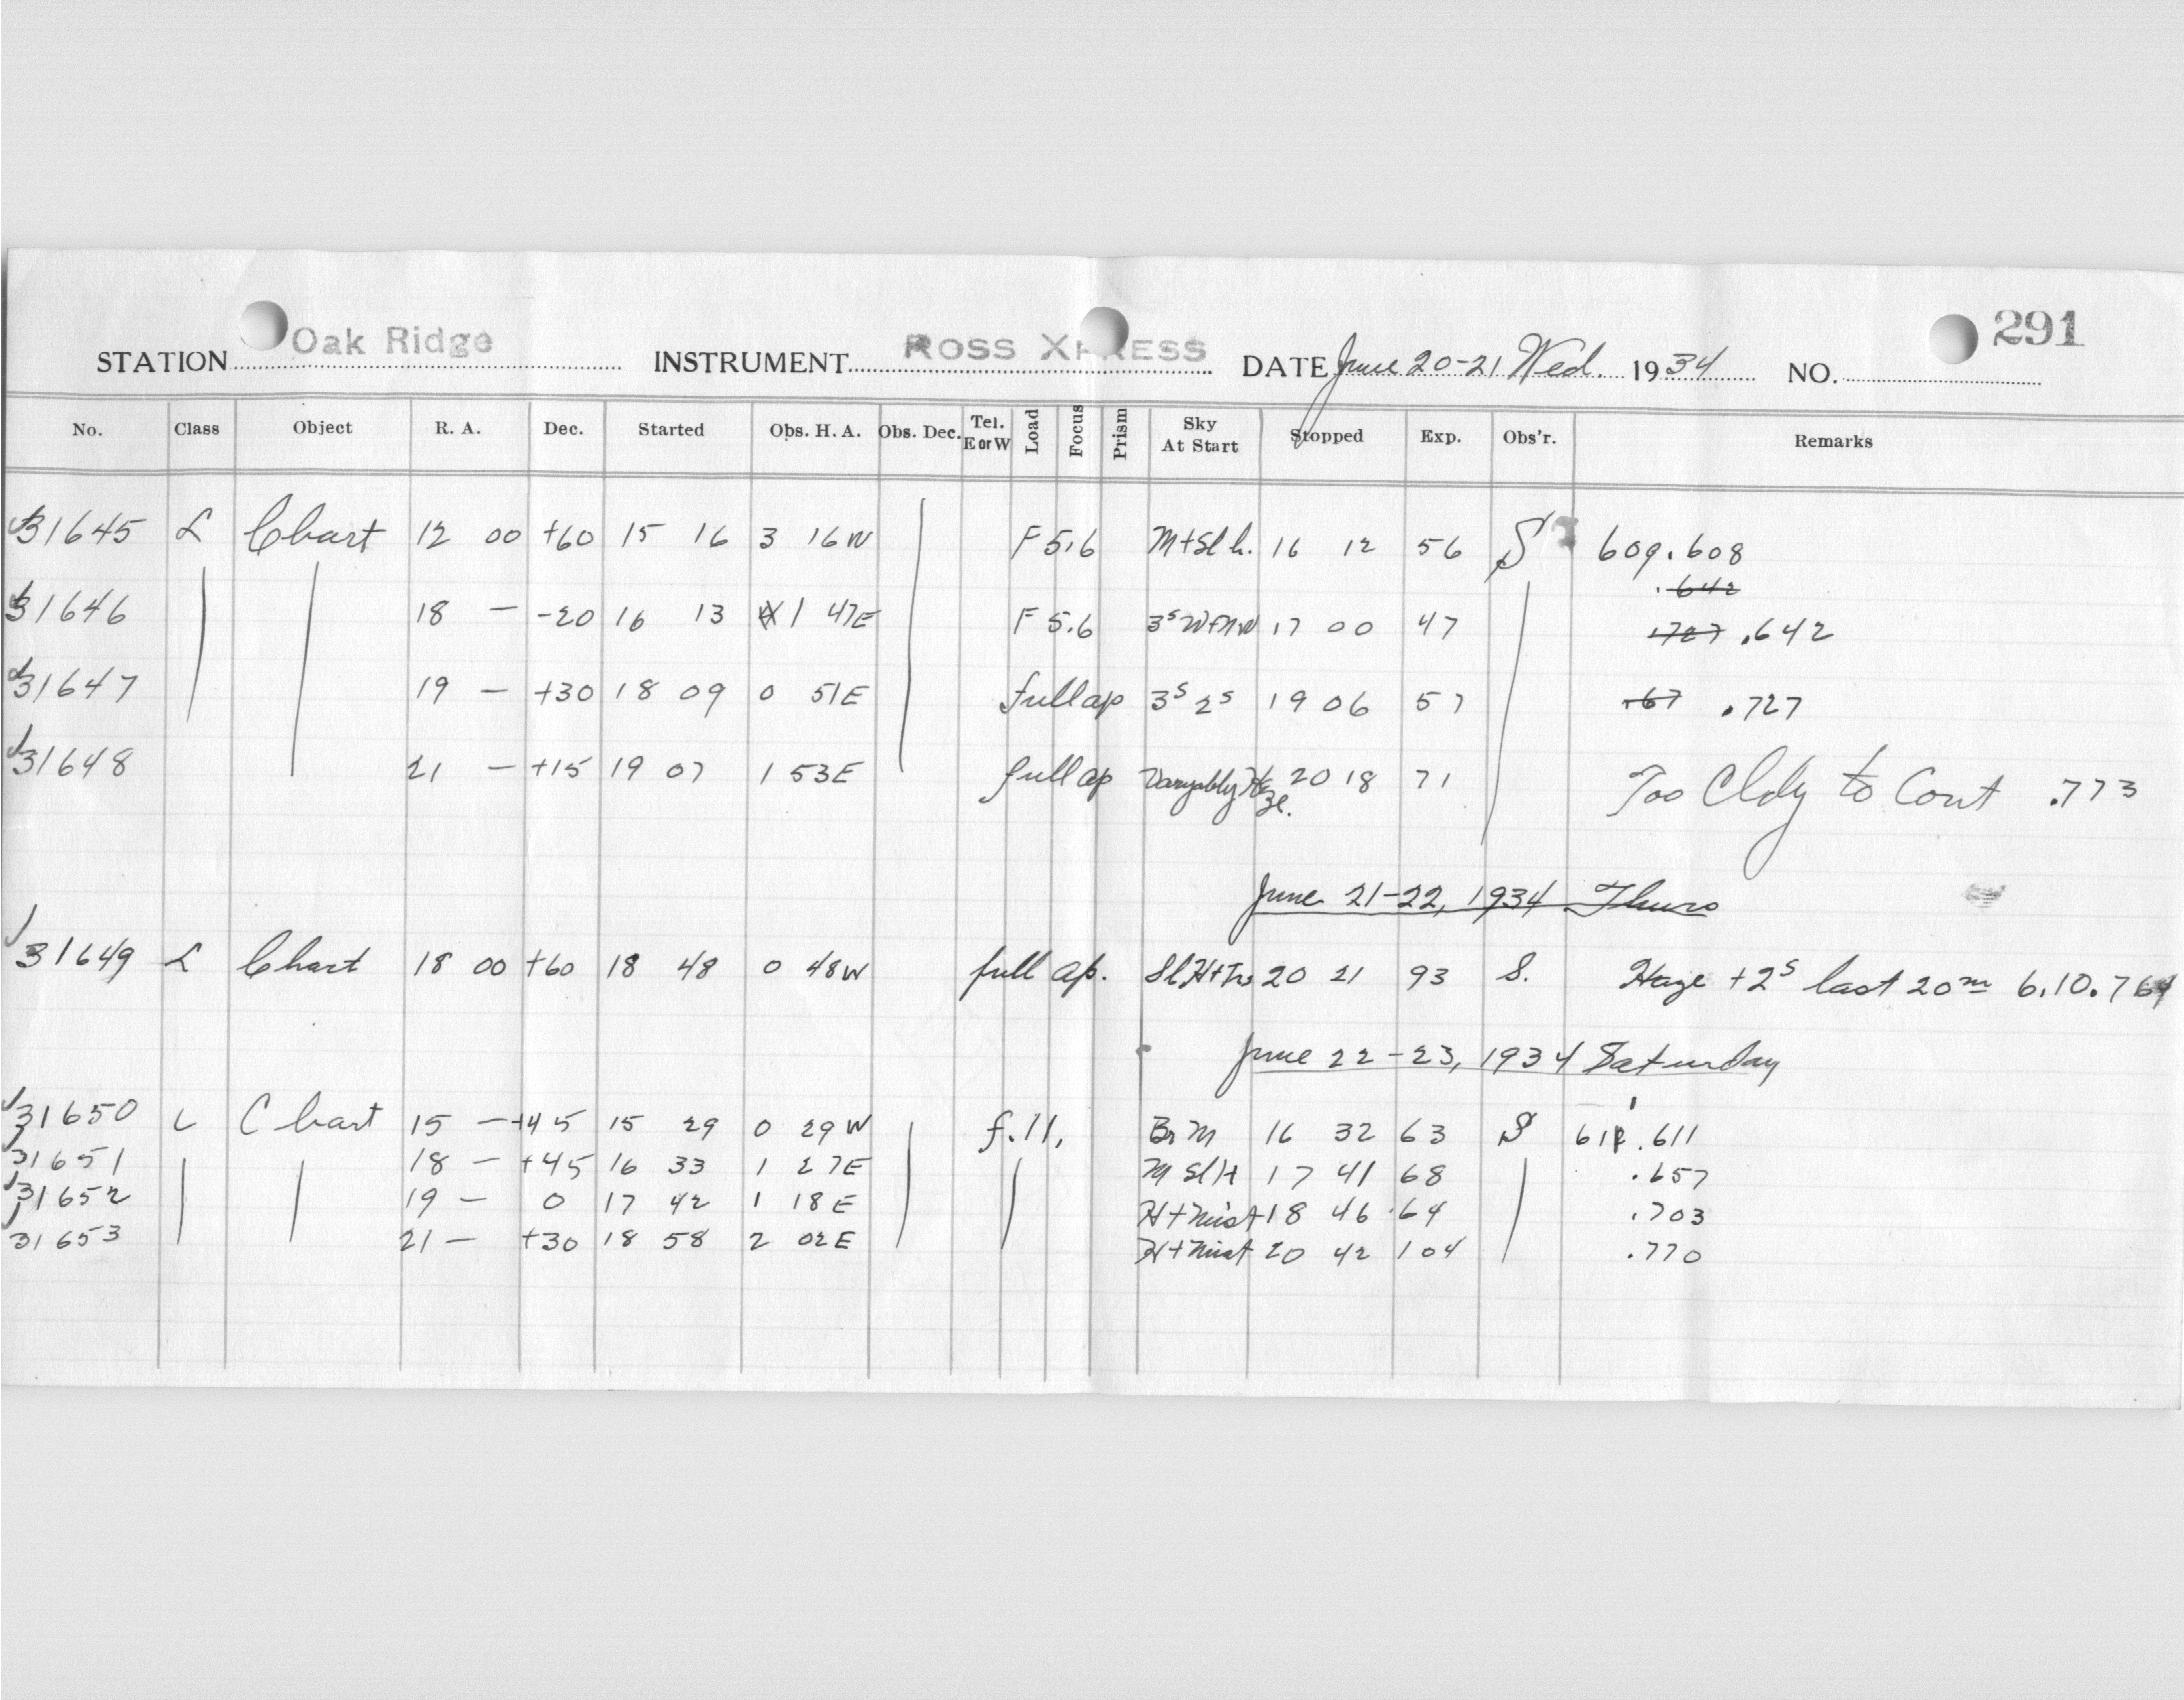 291
STATION Oak Ridge INSTRUMENT ROSS XPRESS DATE June 20-21 Wed. 1934 NO.
No. Class Object R. A. Dec. Started Obs. H. A. Obs. Dec. Tel. E or W Load Focus Prism Sky At Start Stopped Exp. Obs'r. Remarks
31645 L Chart 12 00 +60 15 16 3 16W F 5.6 M+Sl h. 16 12 56 S 609.608
.642
31646 18 — -20 16 13 1 47E F 5.6 3s W+NW 17 00 47 .727 .642
31647 19 — +30 18 09 0 51E full ap 3s 2s 19 06 57 .67 .727
31648 21 — +15 19 07 1 53E full ap Varyably Haze. 20 18 71 Too Cldy to Cont .773
June 21-22, 1934 Thurs
31649 L Chart 18 00 +60 18 48 0 48W full ap. Sl H+ 20 21 93 S. Haze +2s last 20m 6.10.764
June 22-23, 1934 Saturday
31650 L Chart 15 — +45 15 29 0 29W f.11, Br M 16 32 63 S 611.611
31651 18 — +45 16 33 1 27E M Sl H 17 41 68 .657
31652 19 — 0 17 42 1 18E H+Mist 18 46 64 .703
31653 21 — +30 18 58 2 02E H+Mist 20 42 104 .770